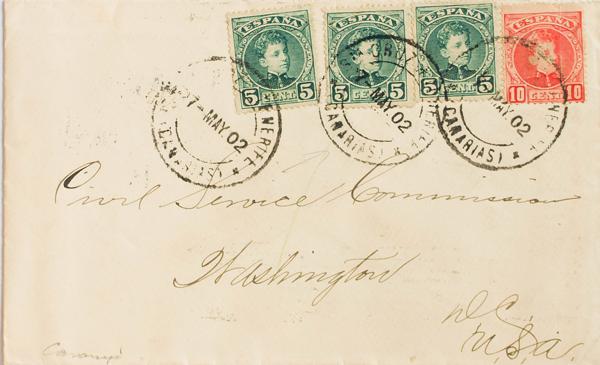 ESPAÑA ESPAÑA ESPAÑA ESPAÑA
5 CENT. 5 5 CENT. 5 5 CENT. 5 10 CENT. 10
OROTAVA
7-MAY.02 MAY.02 MAY.02
TENERIFE (CANARIAS) * TENERIFE (CANARIAS) * TENERIFE (CANARIAS) *
Civil Service Commission
Washington
D.C.
U.S.a.